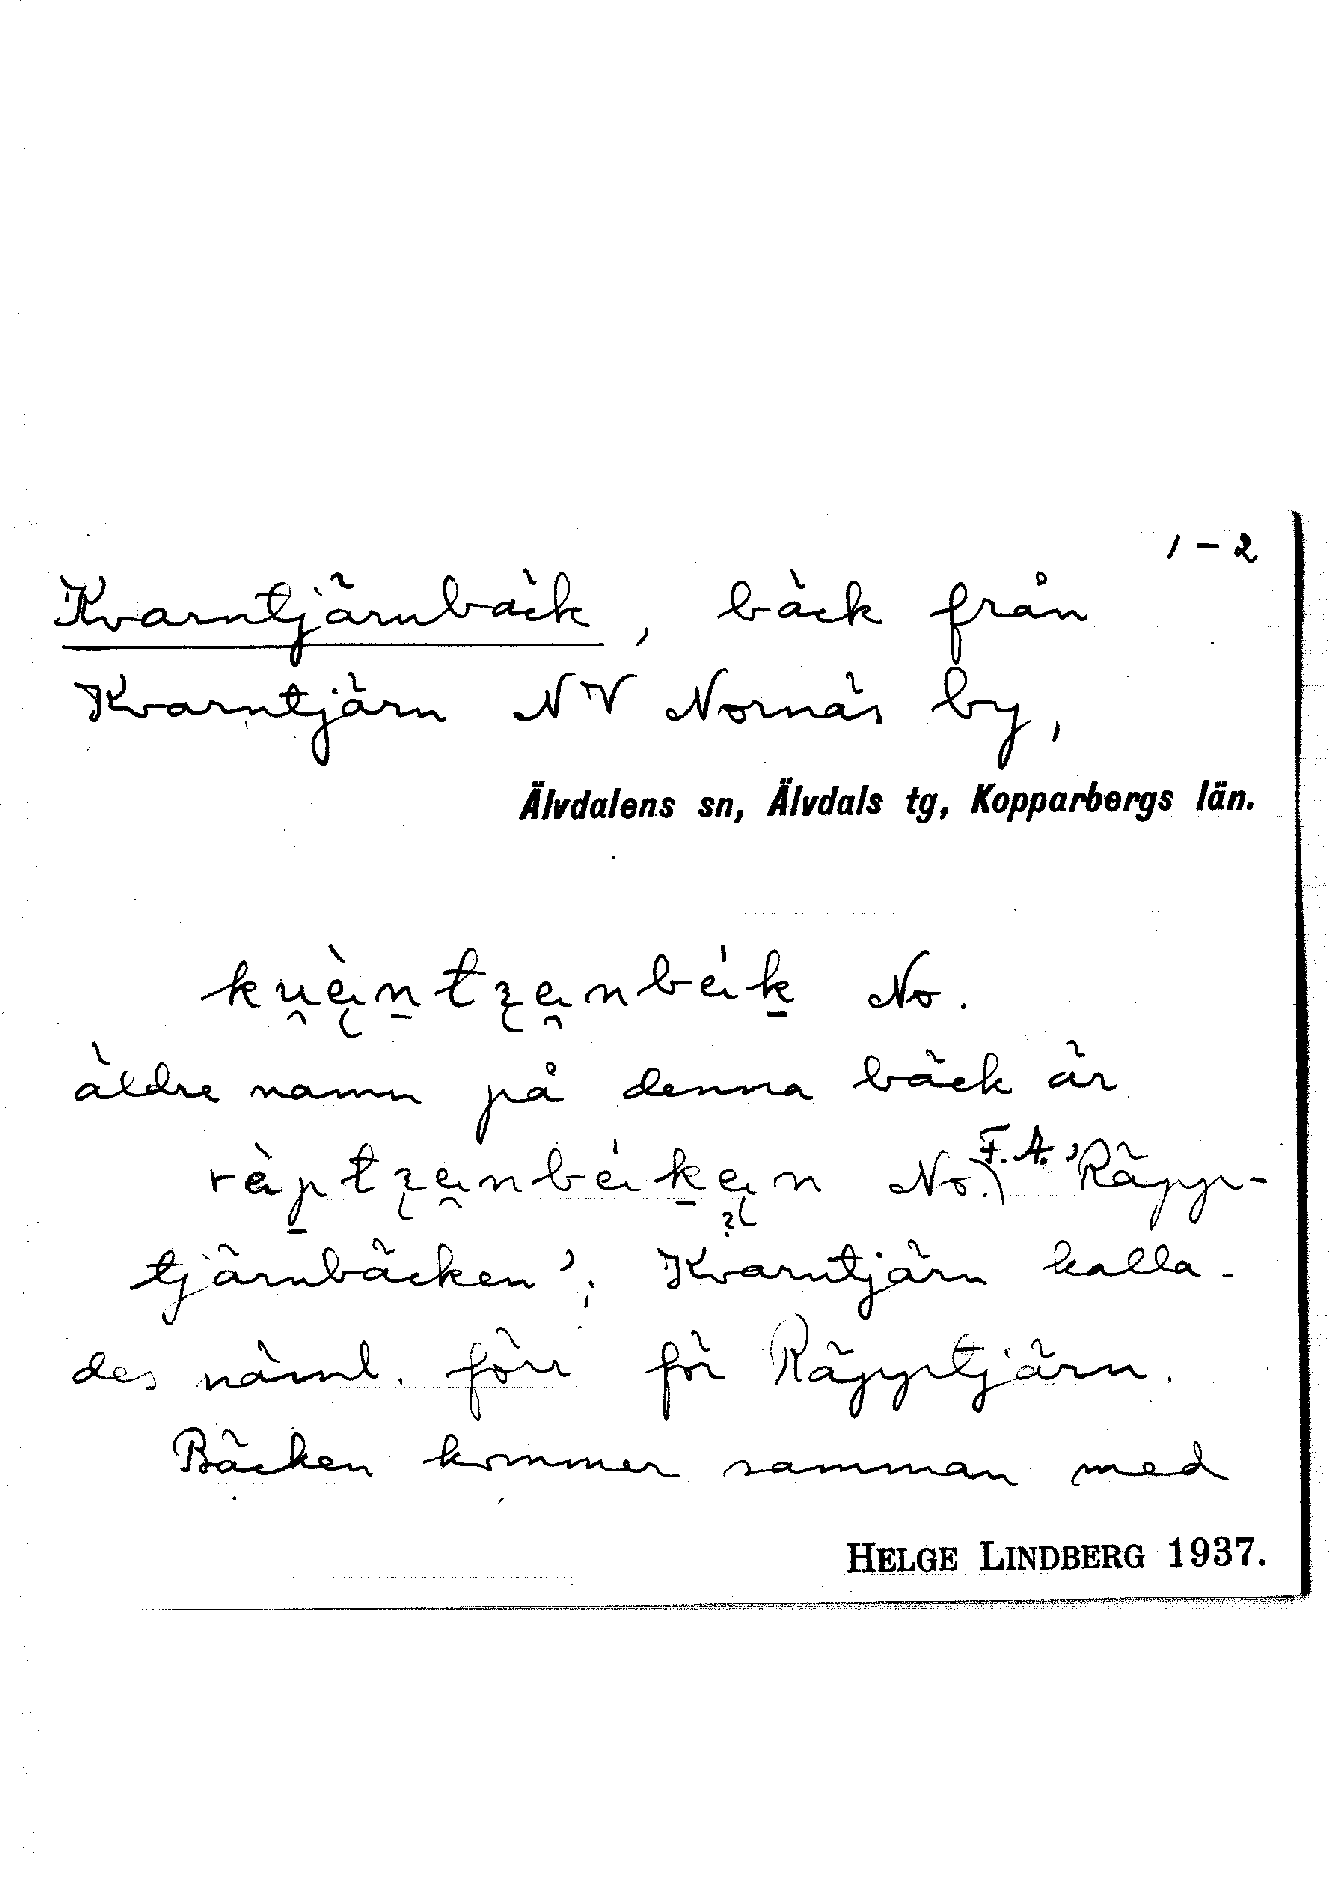 1-2
Kvarntjärnbäck, bäck från
Kvarntjärn NV Nornäs by,
Älvdalens sn, Älvdals tg, Kopparbergs län.
No.
äldre namn på denna bäck är
No. F.A. 'Räpp-
tjärnbäcken'; Kvarntjärn kalla-
des näml. förr för Räpptjärn.
Bäcken kommer samman med
HELGE LINDBERG 1937.